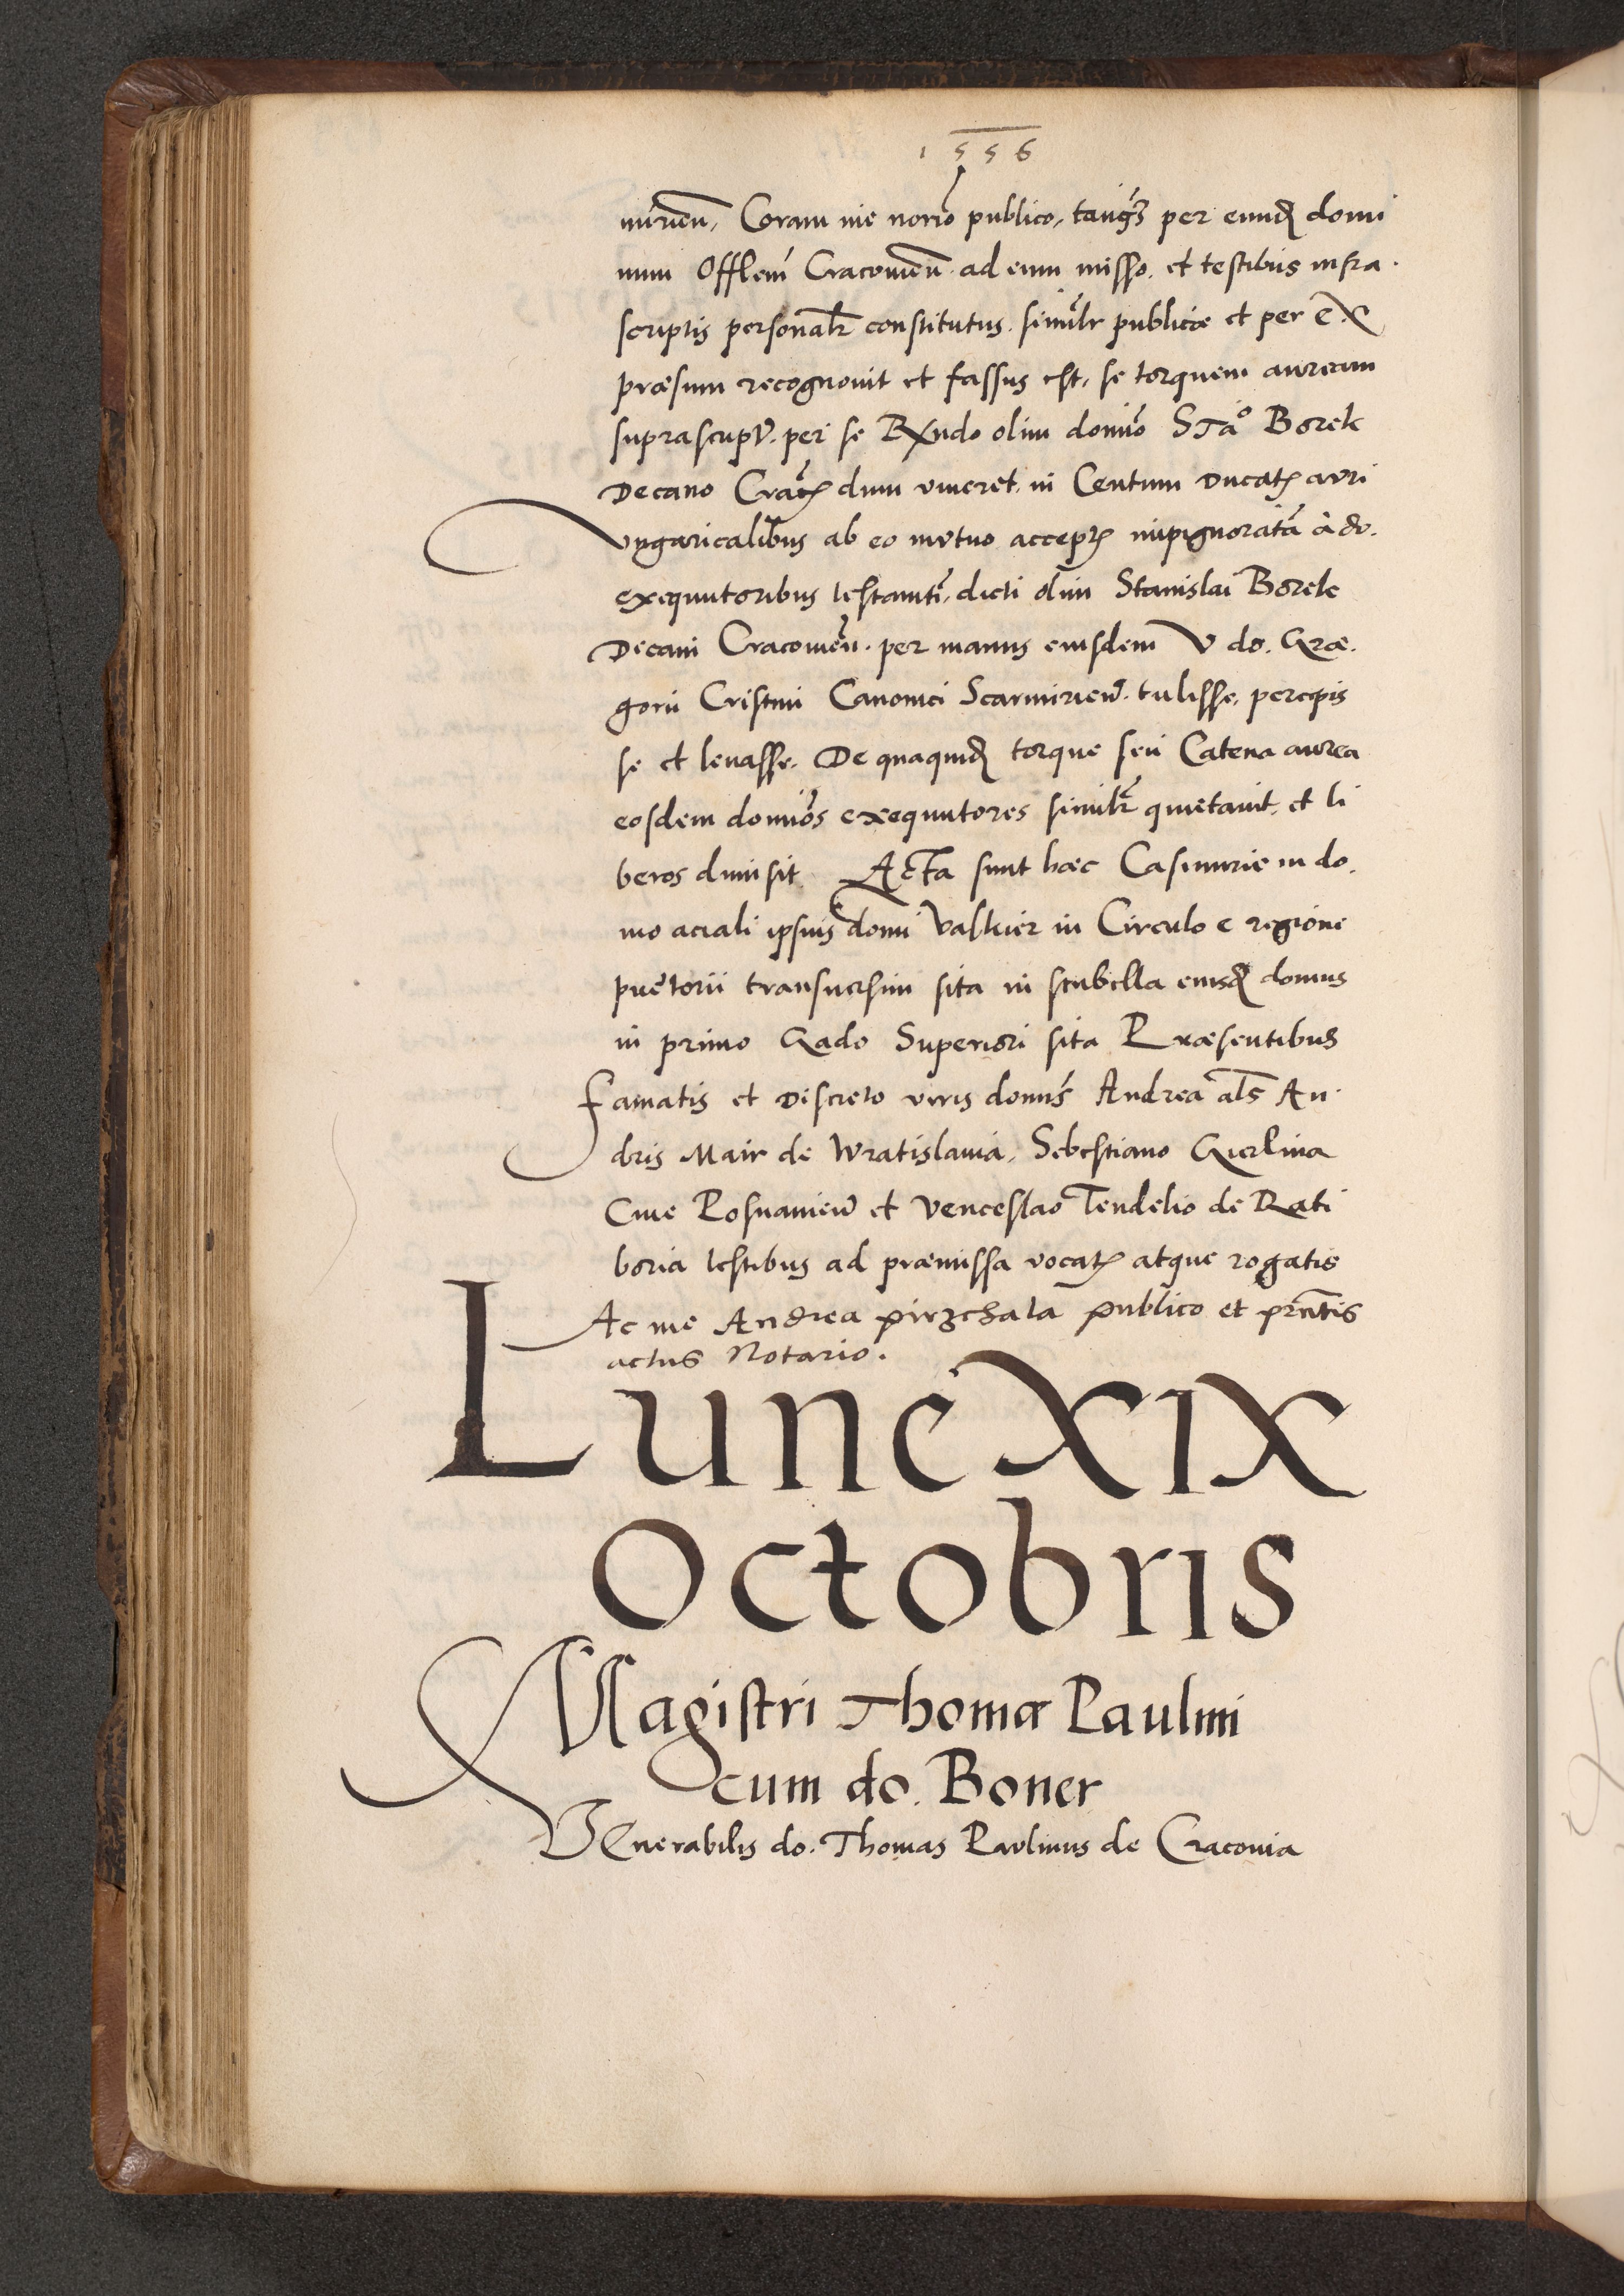 1556
mirien, Coram me norio publico, tanq̃ per eund domi
num Offlem Cracouien ad eum misso, et testibus infra.
scriptis personalr constitutus, similr publice et per ex
præsum recognouit et fassus est, se torquem auream
suprascript. per se Rndo olim domino Stao Borek
Decano Crac dum viueret, in Centum Ducat auri
vngaricalibus ab eo mutuo accept impignorata a do.
exequutoribus testamti, dicti olim Stanislai Borek
Decani Cracouien. per manus eiusdem V do. Græ.
gorii Cristini Canonici Scarmirien. tulisse, percepis
se et leuasse. De quaquid torque seu Catena aurea
eosdem dominos exequutores similr quietauit, et li
beros dimisit. Acta sunt hæc Casimirie in do.
mo aciali ipsius domi Valhier in Circulo e regione
prætorii transuersim sita in stubella eiusd domus
in primo Gado Superiori sita Præsentibus
Famatis et Discreto viris domis Andrea als An.
dris Mair de Wratislauia, Sebestiano Gierlina
Ciue Posnanien et Venceslao Tendelio de Rati
boria testibus ad præmissa vocat atque rogatis
Ac me Andrea pirzchala publico et prntis
actus Notario.
Lune XIX
Octobris
Magistri Thomæ Paulini
cum do. Boner
VEnerabilis do. Thomas Paulinus de Cracouia